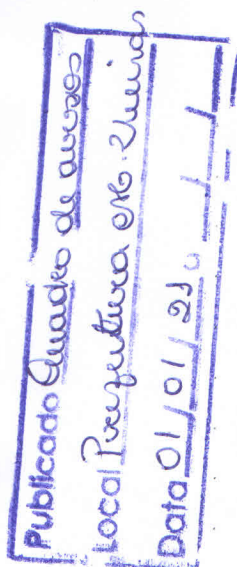 Publicado Quadro de avisos
Local Prefeitura
Data 01/01/21